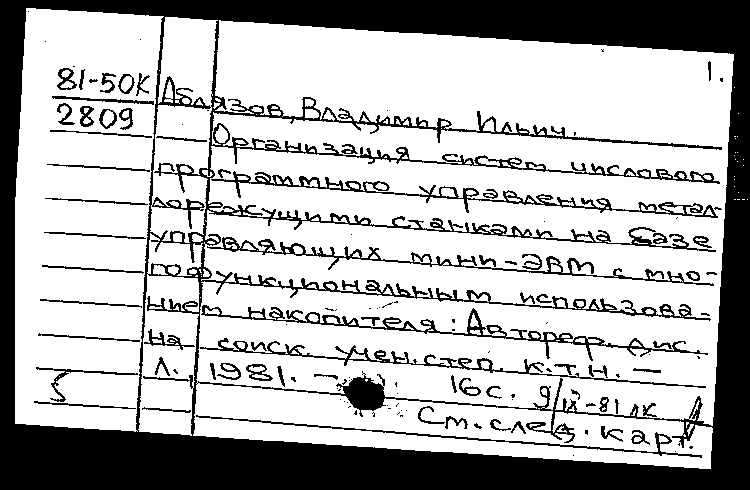 1.
81-50К Аблязов, Владимир Ильич.
2809
Организация систем числового
программного управления метал-
лорежущими станками на базе
управляющих мини-ЭВМ с мно-
гофункциональным использова-
нием накопителя: Автореф. дис.
на соиск. учен. степ. к.т.н. —
Л., 1981. — 16 с. 9/IX-81 ЛК
5 См. след. карт.